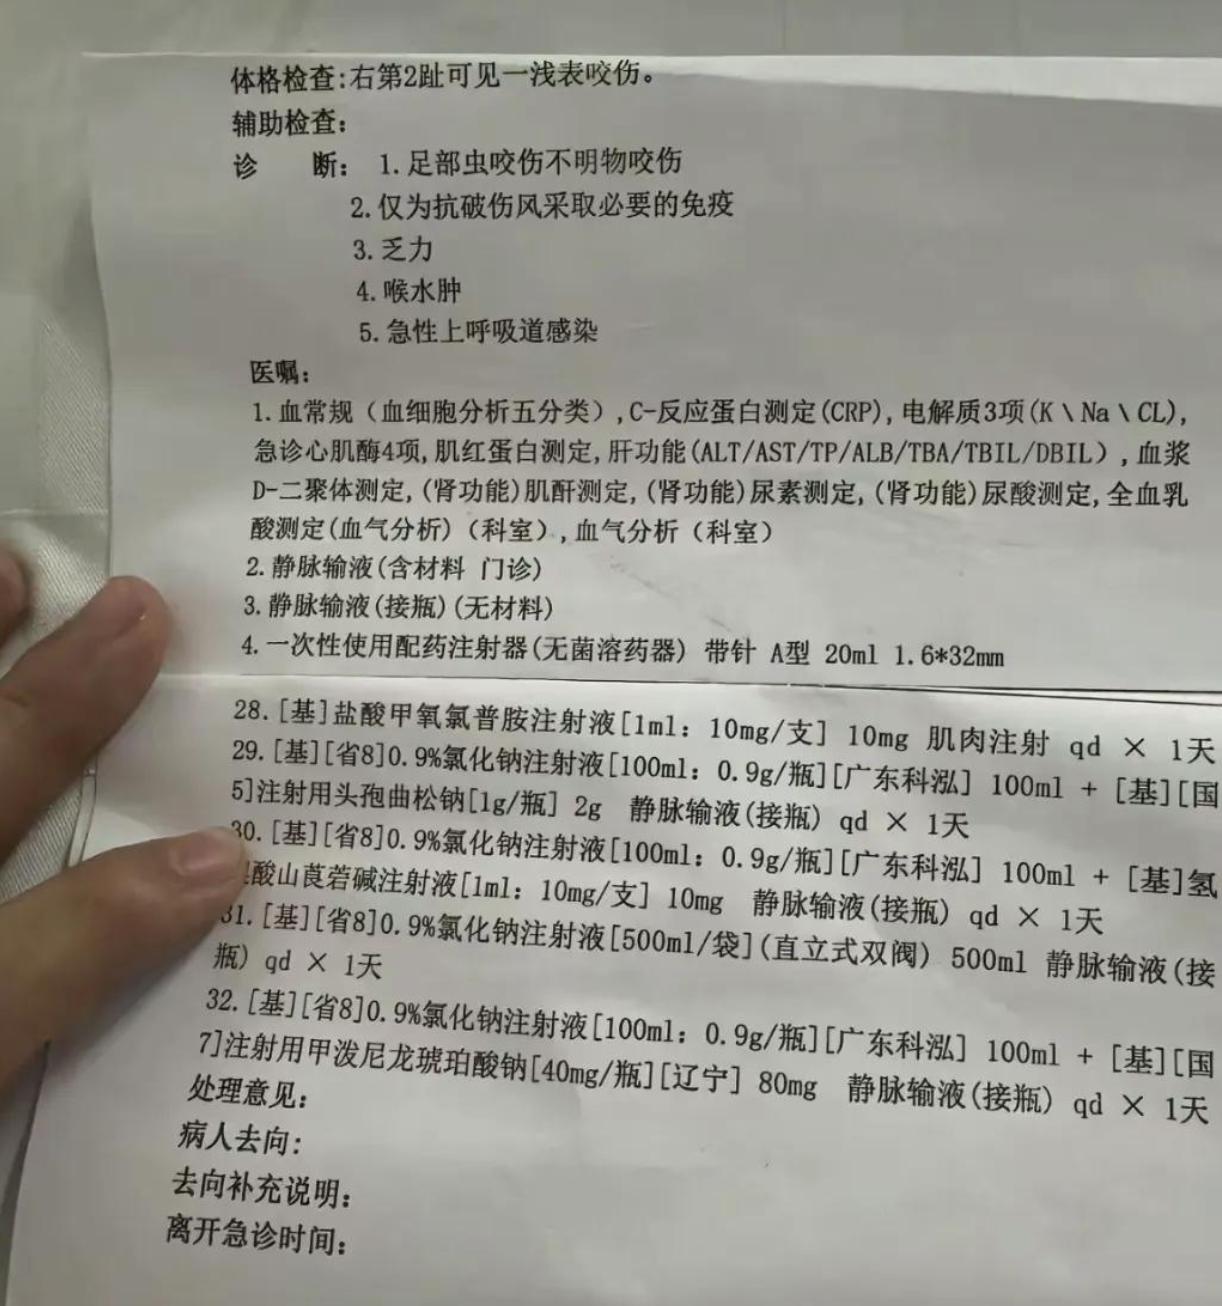 体格检查:右第2趾可见一浅表咬伤。
辅助检查:
诊 断: 1.足部虫咬伤不明物咬伤
2.仅为抗破伤风采取必要的免疫
3.乏力
4.喉水肿
5.急性上呼吸道感染
医嘱:
1.血常规(血细胞分析五分类),C-反应蛋白测定(CRP),电解质3项(K\Na\CL),
急诊心肌酶4项,肌红蛋白测定,肝功能(ALT/AST/TP/ALB/TBA/TBIL/DBIL),血浆
D-二聚体测定,(肾功能)肌酐测定,(肾功能)尿素测定,(肾功能)尿酸测定,全血乳
酸测定(血气分析)(科室),血气分析(科室)
2.静脉输液(含材料 门诊)
3.静脉输液(接瓶)(无材料)
4.一次性使用配药注射器(无菌溶药器) 带针 A型 20ml 1.6*32mm
28.[基]盐酸甲氧氯普胺注射液[1ml: 10mg/支] 10mg 肌肉注射 qd × 1天
29.[基][省8]0.9%氯化钠注射液[100ml: 0.9g/瓶][广东科泓] 100ml + [基][国
5]注射用头孢曲松钠[1g/瓶] 2g 静脉输液(接瓶) qd × 1天
30.[基][省8]0.9%氯化钠注射液[100ml: 0.9g/瓶][广东科泓] 100ml + [基]氢
酸山莨菪碱注射液[1ml: 10mg/支] 10mg 静脉输液(接瓶) qd × 1天
31.[基][省8]0.9%氯化钠注射液[500ml/袋](直立式双阀) 500ml 静脉输液(接
瓶) qd × 1天
32.[基][省8]0.9%氯化钠注射液[100ml: 0.9g/瓶][广东科泓] 100ml + [基][国
7]注射用甲泼尼龙琥珀酸钠[40mg/瓶][辽宁] 80mg 静脉输液(接瓶) qd × 1天
处理意见:
病人去向:
去向补充说明:
离开急诊时间: